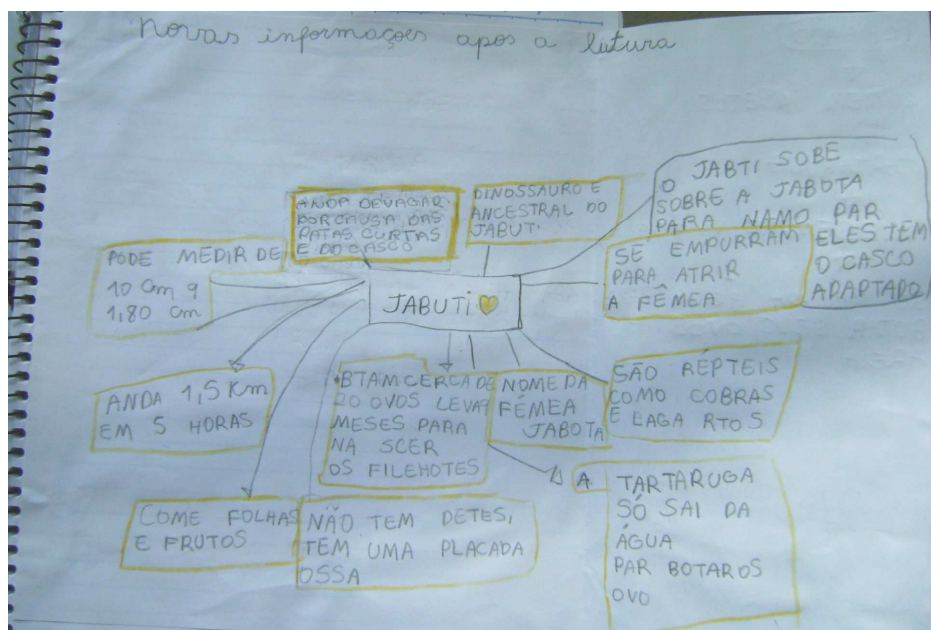 Novas informações apos a leitura
ANDA DEVAGAR
POR CAUSA DAS
PATAS CURTAS
E DO CASCO
DINOSSAURO E
ANCESTRAL DO
JABUTI
O JABTI SOBE
SOBRE A JABOTA
PARA NAMO PAR
ELES TEM
O CASCO
ADAPTADO
SE EMPURRAM
PARA ATRIR
A FÊMEA
PODE MEDIR DE
10 cm a
1,80 cm
JABUTI
ANDA 1,5 Km
EM 5 HORAS
BTAM CERCA DE
20 OVOS LEVA 9
MESES PARA
NA SCER
OS FILEHOTES
NOME DA
FÊMEA
JABOTA
SÃO RÉPTEIS
COMO COBRAS
E LAGA RTOS
COME FOLHAS
E FRUTOS
NÃO TEM DETES,
TEM UMA PLACADA
OSSA
A TARTARUGA
SÓ SAI DA
ÁGUA
PAR BOTAR OS
OVO